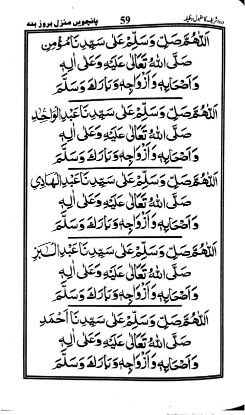 پانچویں منزل بروز بدھ 59
اَللّٰهُمَّ صَلِّ وَسَلِّمْ عَلٰى سَيِّدِنَا مُؤْمِنٍ
صَلَّى اللهُ عَلَيْهِ وَعَلٰى اٰلِهٖ
وَاَصْحَابِهٖ وَاَزْوَاجِهٖ وَبَارَكَ وَسَلَّمَ
اَللّٰهُمَّ صَلِّ وَسَلِّمْ عَلٰى سَيِّدِنَا عَبْدِ الْوَاحِدِ
صَلَّى اللهُ عَلَيْهِ وَعَلٰى اٰلِهٖ
وَاَصْحَابِهٖ وَاَزْوَاجِهٖ وَبَارَكَ وَسَلَّمَ
اَللّٰهُمَّ صَلِّ وَسَلِّمْ عَلٰى سَيِّدِنَا عَبْدِ الْهَادِي
صَلَّى اللهُ عَلَيْهِ وَعَلٰى اٰلِهٖ
وَاَصْحَابِهٖ وَاَزْوَاجِهٖ وَبَارَكَ وَسَلَّمَ
اَللّٰهُمَّ صَلِّ وَسَلِّمْ عَلٰى سَيِّدِنَا عَبْدِ الْبَرِّ
صَلَّى اللهُ عَلَيْهِ وَعَلٰى اٰلِهٖ
وَاَصْحَابِهٖ وَاَزْوَاجِهٖ وَبَارَكَ وَسَلَّمَ
اَللّٰهُمَّ صَلِّ وَسَلِّمْ عَلٰى سَيِّدِنَا اَحْمَدِ
صَلَّى اللهُ عَلَيْهِ وَعَلٰى اٰلِهٖ
وَاَصْحَابِهٖ وَاَزْوَاجِهٖ وَبَارَكَ وَسَلَّمَ